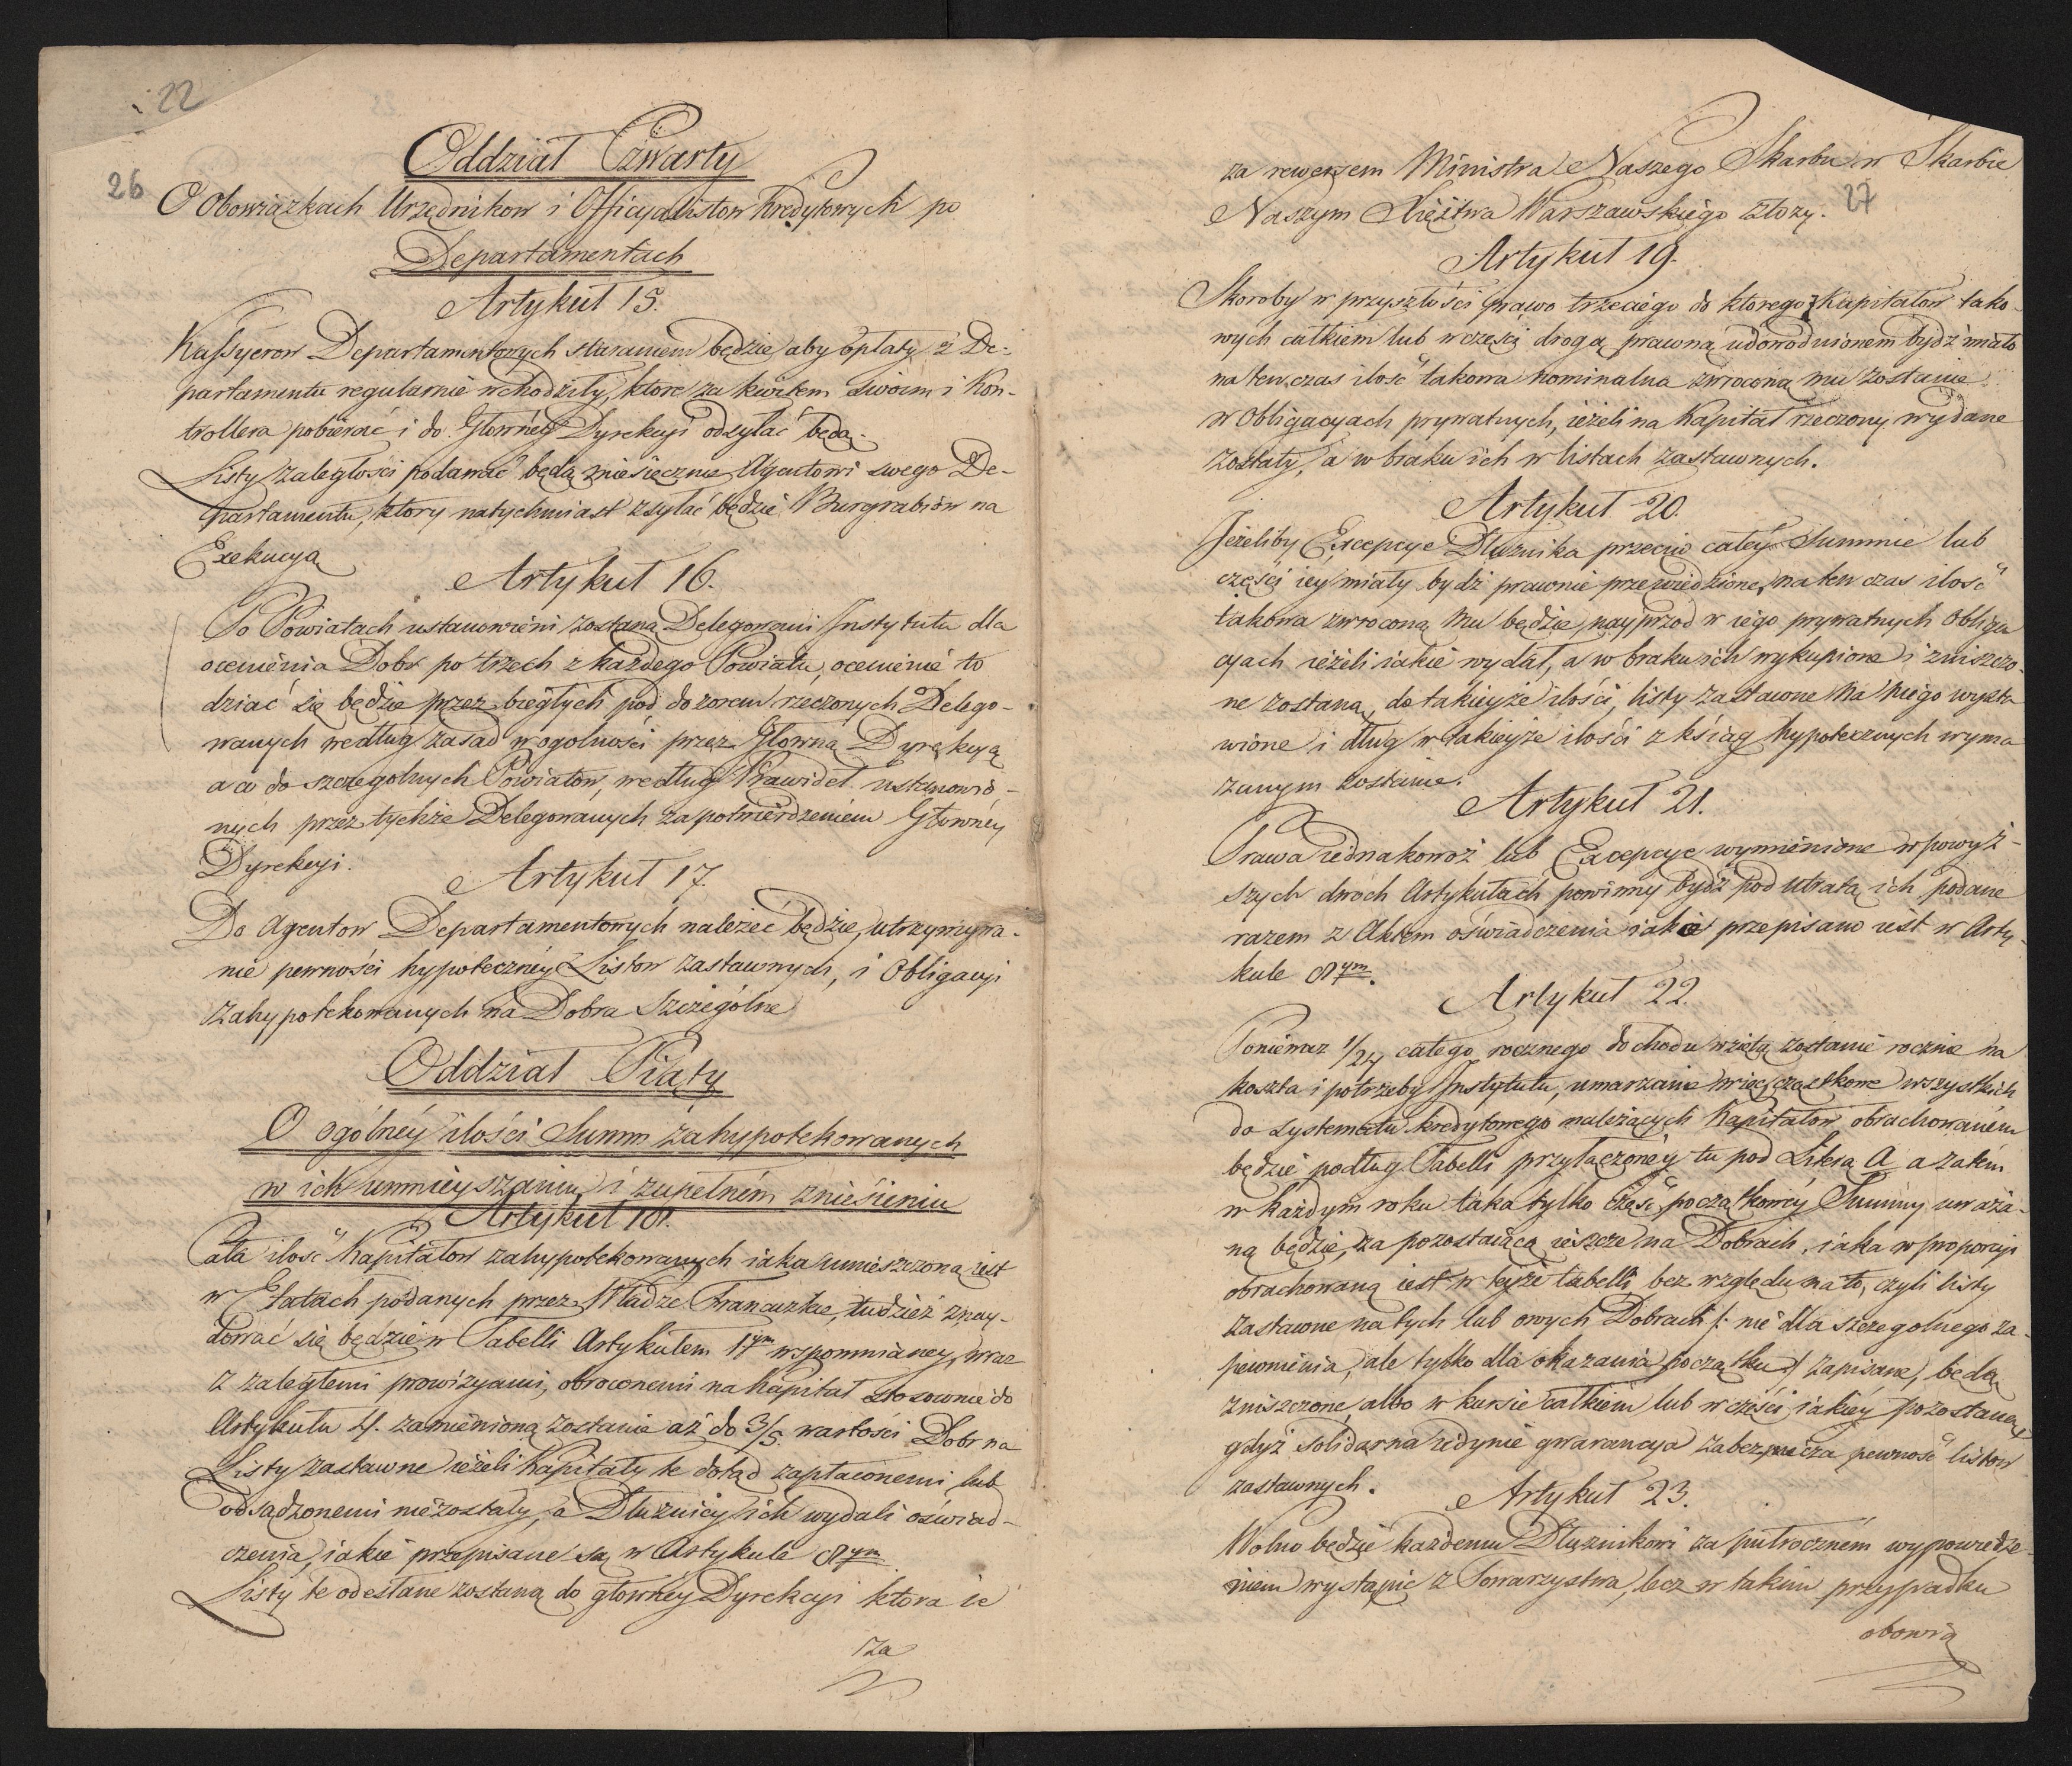 22
26
Oddział Czwarty
O Obowiązkach Urzędnikow i Officyalistow Kredytowych po
Departamentach
Artykuł 15.
Kassyerow Departamentowych staraniem będzie aby opłaty z De-
partamentu regularnie wchodziły, ktore za kwitem swoim i Kon-
trollera pobierać i do Głownéy Dyrekcyi odsyłać będą.
Listy zaległości podawać będą miesięcznie Agentowi swego De-
partamentu, ktory natychmiast zsyłać będzie Burgrabiów na
Exekucyą
Artykuł 16.
Po Powiatach ustanowieni zostaną Delegowani Instytutu dla
ocenienia Dobr po trzech z każdego Powiatu, ocenienie to
dziać się będzie przez biegłych pod dozorem rzeczonych Delego-
wanych według zasad w ogolności przez Głowną Dyrekcyą
a co do szczegolnych Powiatow, według Prawideł ustanowio-
nych przez tychże Delegowanych za potwierdzeniem Głownéy
Dyrekcyi.
Artykuł 17.
Do Agentow Departamentowych należeć będzie, utrzymywa-
nie pewności hypoteczney Listow zastawnych, i Obligacyi
zahypotekowanych na Dobra Szczególne
Oddział Piąty
O ogólnéy ilości Summ zahypotekowanych
w ich umnieyszaniu i zupełném zniesieniu
Artykuł 18.
Cała ilość Kapitałow zahypotekowanych iaka umieszczona iest
w Etatach podanych przez Władze Francuzkie, tudzież znay-
dować się będzie w Tabelli Artykułem 1ym wspomnianey, wraz
z zaległemi prowizyami, obroconemi na kapitał stosownie do
Artykułu 4. zamienioną zostanie aż do 3/5. wartości Dobr na
Listy zastawne ieżeli Kapitały te dotąd zapłaconemi lub
odsądzonemi niezostały, a Dłużnicy ich wydali oświad-
czenia, iakie przepisane są w Artykule 8ym
Listy te odesłane zostaną do głowney Dyrekcyi ktora ie
za
za rewersem Ministra Naszego Skarbu w Skarbie
Naszym Xięztwa Warszawskiego złoży.
27
Artykuł 19.
Skoroby w przyszłości prawo trzeciego do ktorego z Kapitałow tako-
wych całkiem lub w części drogą prawną udowodnionem bydź miało
na tenczas ilość takowa nominalna zwroconą mu zostanie
w Obligacyach prywatnych, ieżeli na Kapitał rzeczony wydane
zostały, a w braku ich w listach zastawnych.
Artykuł 20.
Jeżeliby Excepcye Dłużnika przeciw całey Summie lub
części iey miały bydź prawnie przewiedzione, na ten czas ilość
takowa zwroconą mu będzie nayprzod w iego prywatnych Obliga
cyach ieżeli iakie wydał, a w braku ich wykupione i zniszczo-
ne zostaną, do takieyże ilości, listy zastawne na niego wysta
wione i dług w takieyże ilości z ksiąg hypotecznych wyma
zanym zostanie.
Artykuł 21.
Prawa iednakowoż lub Excepcye wymienione w powyż-
szych dwóch Artykułach powinny bydź pod utratą ich podane
razem z Aktem oświadczenia iakie przepisano iest w Arty-
kule 8ym.
Artykuł 22.
Ponieważ 1/24 całego rocznego dochodu wziętą zostanie rocznie na
koszta i potrzeby Instytutu, umarzanie więc cząstkowe wszystkich
do systematu kredytowego należących Kapitałow obrachowaném
będzie podług Tabelli przyłączonéy tu pod Literą A a zatém
w każdym roku taka tylko część początkowéy Summy uważa-
ną będzie, za pozostaiącą ieszcze na Dobrach, iaka w proporcyi
obrachowaną iest w teyże tabelli bez względu na to, czyli listy
zastawne na tych lub owych Dobrach /: nie dla szczegolnego za-
pewnienia, ale tylko dla okazania początku :/ zapisane, będą
zniszczone, albo w kursie całkiem lub w części iakiéy pozostaną
gdyż solidarna iedynie gwarancya zabezpiecza pewność listow
zastawnych.
Artykuł 23.
Wolno będzie każdemu Dłużnikowi za pułrocznem wypowiedze-
niem wystąpić z Towarzystwa, lecz w takim przypadku
obowią